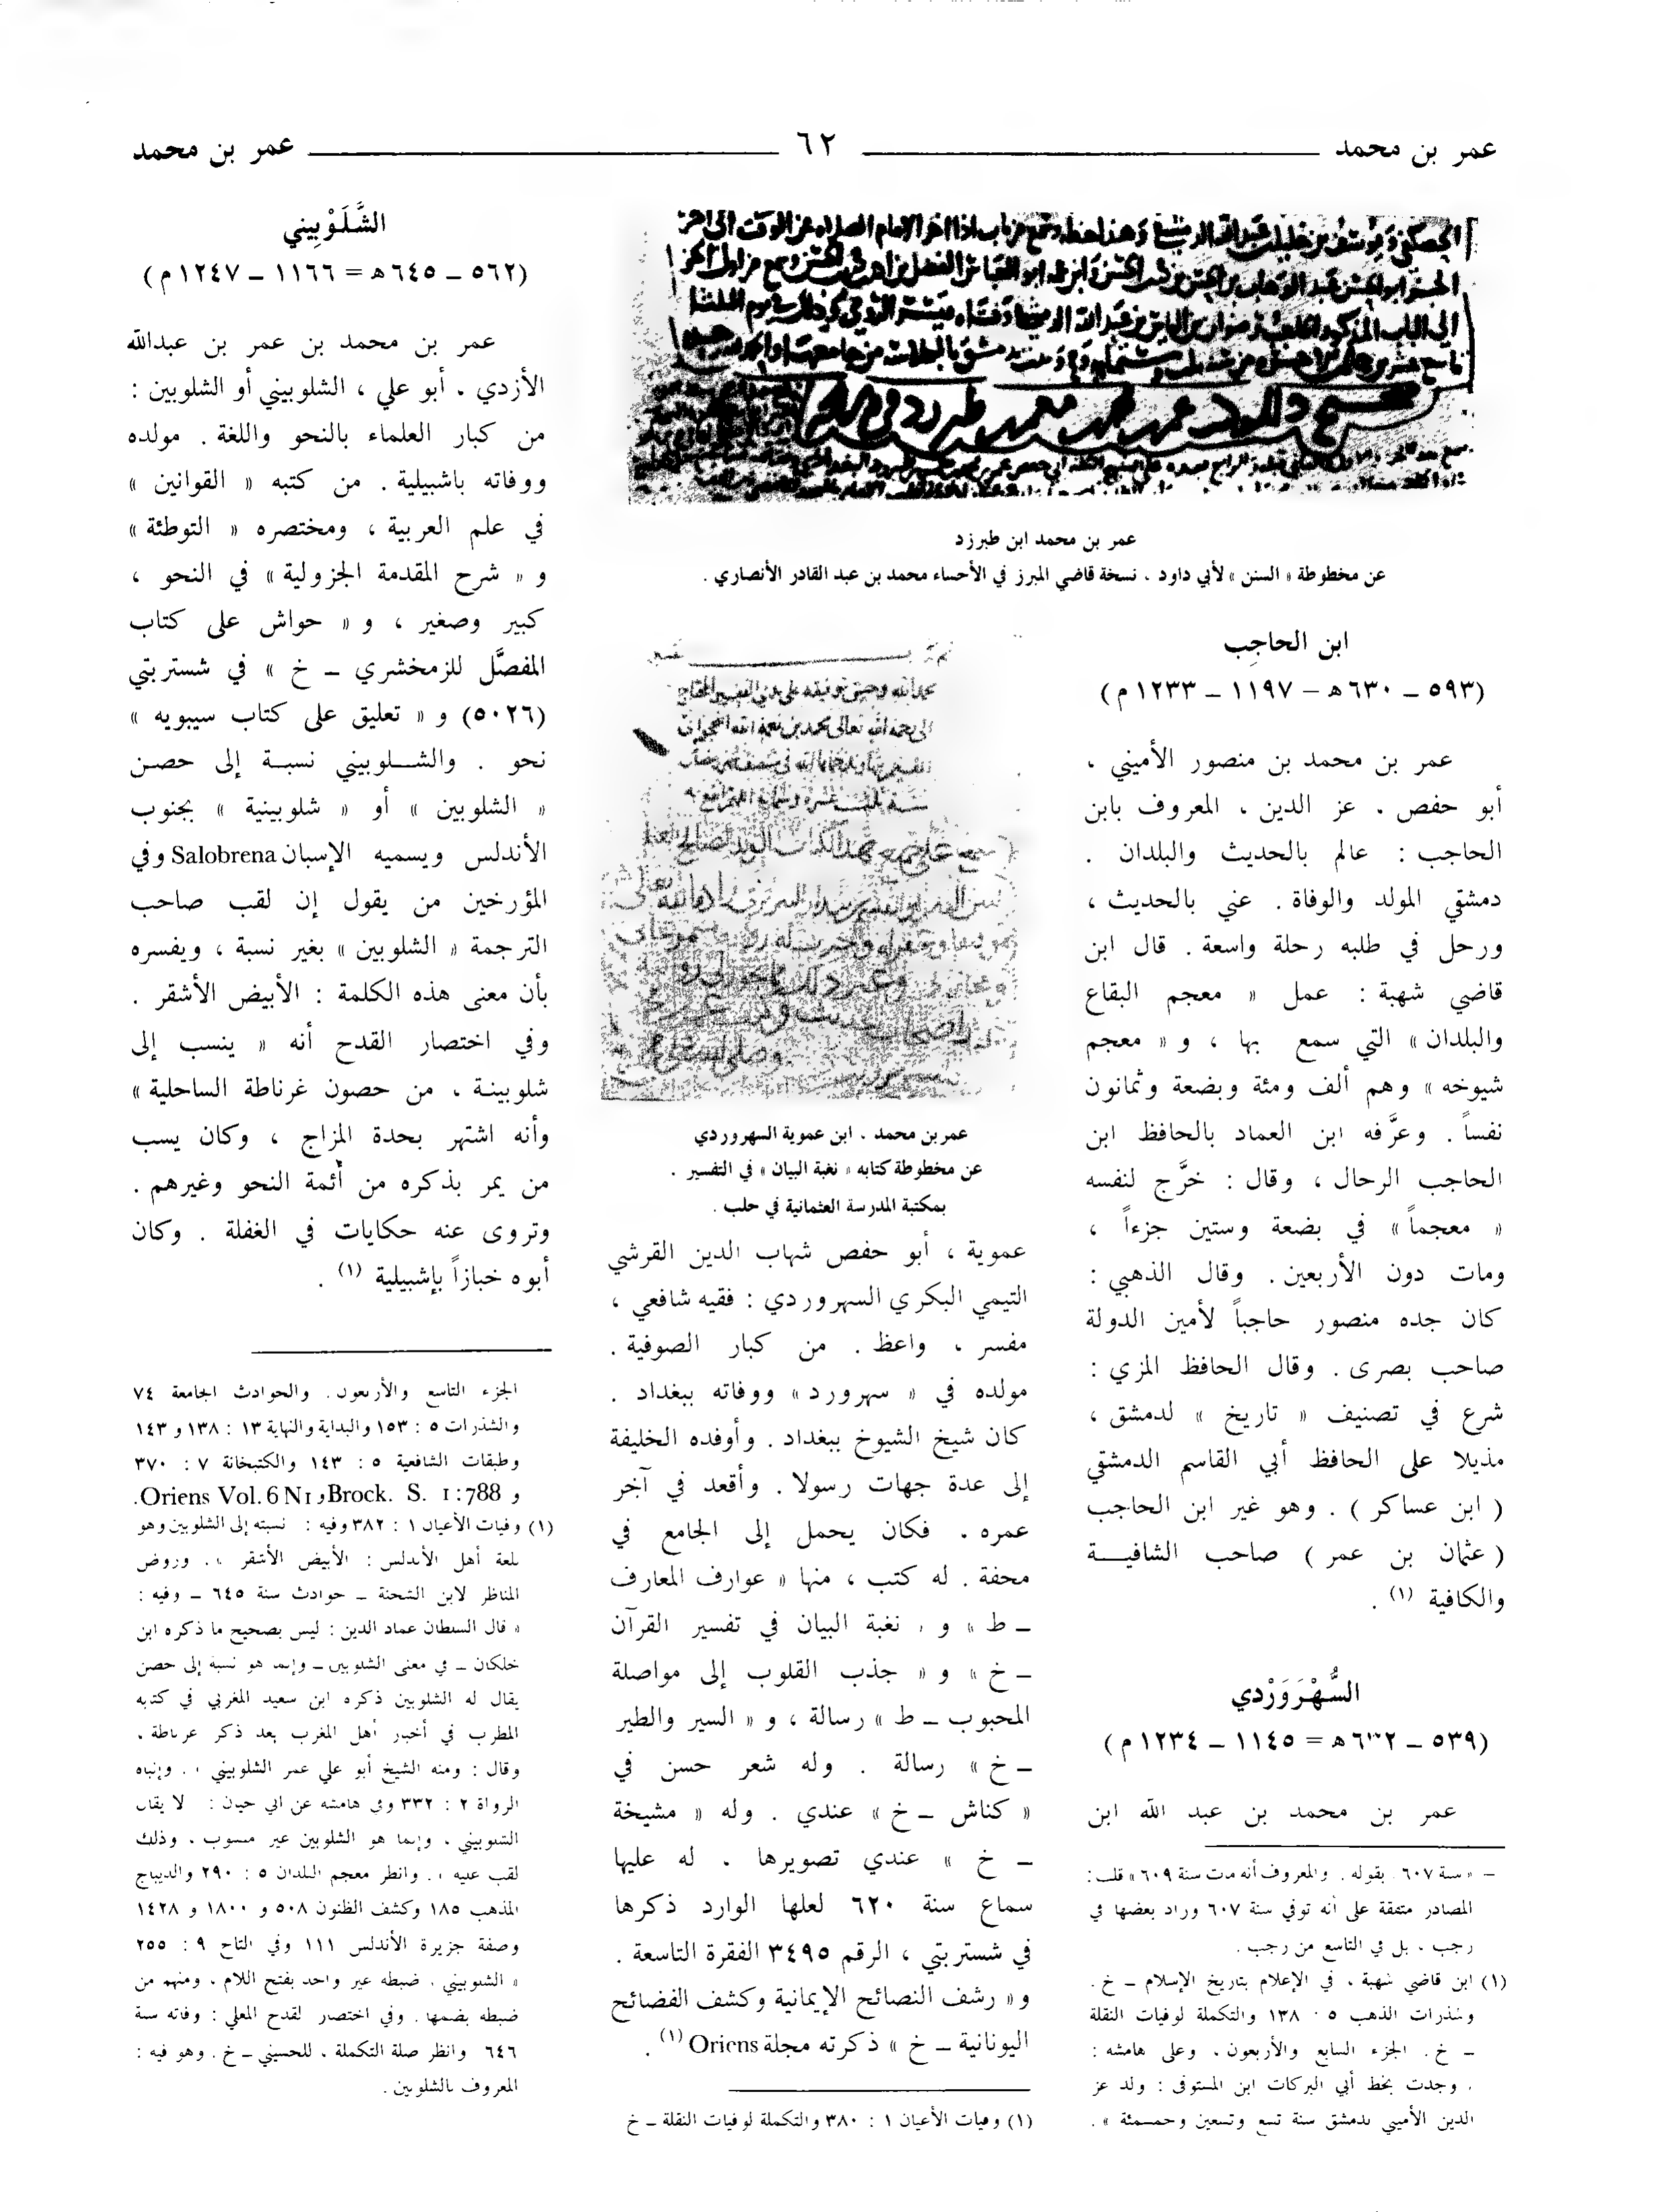 عمر بن محمد ٦٢ عمر بن محمد
عمر بن محمد ابن طبرزد
عن مخطوطة « السنن » لأبي داود ، نسخة قاضي المبرز في الأحساء محمد بن عبد القادر الأنصاري .
ابن الحاجِب
(٥٩٣ ــ ٦٣٠ هـ ــ ١١٩٧ ــ ١٢٣٣ م )
عمر بن محمد بن منصور الأميني ،
أبو حفص ، عز الدين ، المعروف بابن
الحاجب : عالم بالحديث والبلدان .
دمشقي المولد والوفاة . عني بالحديث ،
ورحل في طلبه رحلة واسعة . قال ابن
قاضي شهبة : عمل « معجم البقاع
والبلدان » التي سمع بها ، و « معجم
شيوخه » وهم ألف ومئة وبضعة وثمانون
نفساً . وعرَّفه ابن العماد بالحافظ ابن
الحاجب الرحال ، وقال : خرَّج لنفسه
« معجماً » في بضعة وستين جزءاً ،
ومات دون الأربعين . وقال الذهبي :
كان جده منصور حاجباً لأمين الدولة
صاحب بصرى . وقال الحافظ المزي :
شرع في تصنيف « تاريخ » لدمشق ،
مذيلا على الحافظ أبي القاسم الدمشقي
( ابن عساكر ) . وهو غير ابن الحاجب
( عثمان بن عمر ) صاحب الشافيــة
والكافية (١) .
السُّهْرَوَرْدي
(٥٣٩ ــ ٦٣٢ هـ = ١١٤٥ ــ ١٢٣٤ م )
عمر بن محمد بن عبد الله ابن
ــ « سنة ٦٠٧ بقوله . والمعروف أنه مات سنة ٦٠٩ » قلت :
المصادر متفقة على أنه توفي سنة ٦٠٧ وزاد بعضها في
رجب ، بل في التاسع من رجب .
(١) ابن قاضي شهبة ، في الإعلام بتاريخ الإسلام ــ خ .
وشذرات الذهب ٥ : ١٣٨ والتكملة لوفيات النقلة
ــ خ . الجزء السابع والأربعون ، وعلى هامشه :
، وجدت بخط أبي البركات ابن المستوفى : ولد عز
الدين الأميني بدمشق سنة تسع وتسعين وخمسمئة » .
عمر بن محمد ، ابن عموية السهروردي
عن مخطوطة كتابه « نغبة البيان » في التفسير .
بمكتبة المدرسة العثمانية في حلب .
عموية ، أبو حفص شهاب الدين القرشي
التيمي البكري السهروردي : فقيه شافعي ،
مفسر ، واعظ . من كبار الصوفية .
مولده في « سهرورد » ووفاته ببغداد .
كان شيخ الشيوخ ببغداد . وأوفده الخليفة
إلى عدة جهات رسولا . وأقعد في آخر
عمره . فكان يحمل إلى الجامع في
محفة . له كتب ، منها « عوارف المعارف
ــ ط » و « نغبة البيان في تفسير القرآن
ــ خ » و « جذب القلوب إلى مواصلة
المحبوب ــ ط » رسالة ، و « السير والطير
ــ خ » رسالة . وله شعر حسن في
« كناش ــ خ » عندي . وله « مشيخة
ــ خ » عندي تصويرها . له عليها
سماع سنة ٦٢٠ لعلها الوارد ذكرها
في شستربتي ، الرقم ٣٤٩٥ الفقرة التاسعة .
و « رشف النصائح الإيمانية وكشف الفضائح
اليونانية ــ خ » ذكرته مجلة Oriens (١) .
(١) وفيات الأعيان ١ : ٣٨٠ والتكملة لوفيات النقلة ــ خ
الشَّلَوْبِيني
(٥٦٢ ــ ٦٤٥ هـ = ١١٦٦ ــ ١٢٤٧ م )
عمر بن محمد بن عمر بن عبدالله
الأزدي ، أبو علي ، الشلوبيني أو الشلوبين :
من كبار العلماء بالنحو واللغة . مولده
ووفاته باشبيلية . من كتبه « القوانين »
في علم العربية ، ومختصره « التوطئة »
و « شرح المقدمة الجزولية » في النحو ،
كبير وصغير ، و « حواش على كتاب
المفصَّل للزمخشري ــ خ » في شستربتي
(٥٠٢٦) و « تعليق على كتاب سيبويه »
نحو . والشــلوبيني نسبــة إلى حصـن
« الشلوبين » أو « شلوبينية » بجنوب
الأندلس ويسميه الإسبان Salobrena وفي
المؤرخين من يقول إن لقب صاحب
الترجمة « الشلوبين » بغير نسبة ، ويفسره
بأن معنى هذه الكلمة : الأبيض الأشقر .
وفي اختصار القدح أنه « ينسب إلى
شلوبينـة ، من حصون غرناطة الساحلية »
وأنه اشتهر بحدة المزاج ، وكان يسب
من يمر بذكره من أئمة النحو وغيرهم .
وتروى عنه حكايات في الغفلة . وكان
أبوه خبازاً بإشبيلية (١) .
الجزء التاسع والأربعون . والحوادث الجامعة ٧٤
والشذرات ٥ : ١٥٣ والبداية والنهاية ١٣ : ١٣٨ و ١٤٣
وطبقات الشافعية ٥ : ١٤٣ والكتبخانة ٧ : ٣٧٠
و Brock. S. 1:788 و Oriens Vol. 6 N1.
(١) وفيات الأعيان ١ : ٣٨٢ وفيه : نسبته إلى الشلوبين وهو
بلغة أهل الأندلس : الأبيض الأشقر ، . وروض
المناظر لابن الشحنة ــ حوادث سنة ٦٤٥ ــ وفيه :
« قال السلطان عماد الدين : ليس بصحيح ما ذكره ابن
خلكان ــ في معنى الشلوبين ــ وإنما هو نسبة إلى حصن
يقال له الشلوبين ذكره ابن سعيد المغربي في كتابه
المطرب في أخبار أهل المغرب بعد ذكر غرناطة ،
وقال : ومنه الشيخ أبو علي عمر الشلوبيني ، . وإنباه
الرواة ٢ : ٣٣٢ وفي هامشه عن أبي حيان : لا يقال
الشلوبيني ، وإنما هو الشلوبين غير منسوب ، وذلك
لقب عليه ، . وانظر معجم البلدان ٥ : ٢٩٠ والديباج
المذهب ١٨٥ وكشف الظنون ٥٠٨ و ١٨٠٠ و ١٤٢٨
وصفة جزيرة الأندلس ١١١ وفي التاج ٩ : ٢٥٥
« الشلوبيني ، ضبطه غير واحد بفتح اللام ، ومنهم من
ضبطه بضمها . وفي اختصار القدح المعلى : وفاته سنة
٦٤٦ وانظر صلة التكملة ، للحسيني ــ خ . وهو فيه :
المعروف بالشلوبين .